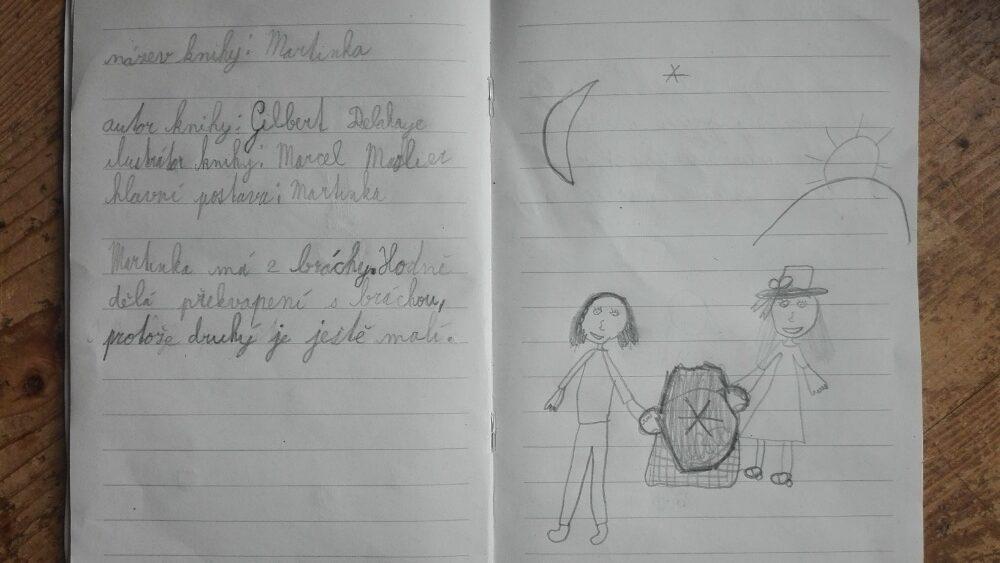 název knihy: Martinka
autor knihy: Gilbert Delahaye
ilustrátor knihy: Marcel Marlier
hlavní postava: Martinka
Martinka má 2 bráchy. Hodně
dělá překvapení s bráchou,
protože druhý je ještě malí.